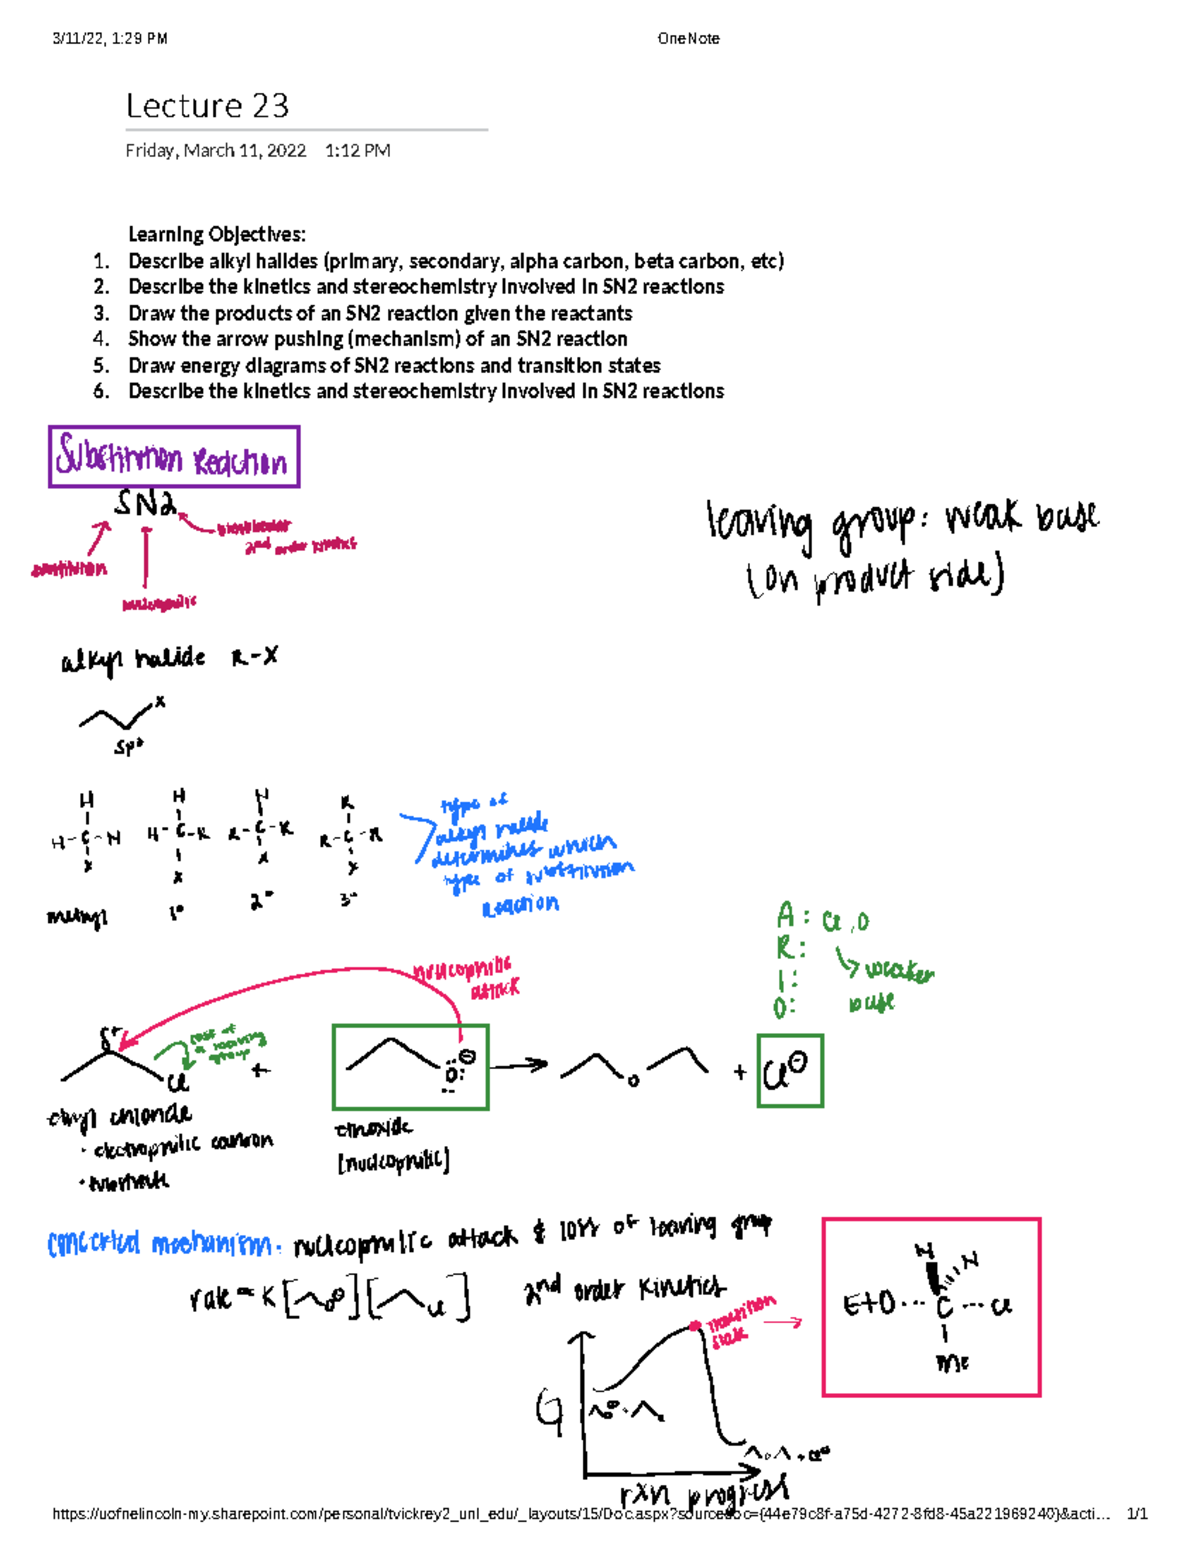 3/11/22, 1:29 PM
OneNote
Lecture 23
Friday, March 11, 2022 1:12 PM
Learning Objectives:
1. Describe alkyl halides (primary, secondary, alpha carbon, beta carbon, etc)
2. Describe the kinetics and stereochemistry involved in SN2 reactions
3. Draw the products of an SN2 reaction given the reactants
4. Show the arrow pushing (mechanism) of an SN2 reaction
5. Draw energy diagrams of SN2 reactions and transition states
6. Describe the kinetics and stereochemistry involved in SN2 reactions
Substitution Reaction
SN2
bimolecular
2nd order kinetics
substitution
nucleophilic
leaving group: weak base
(on product side)
alkyl halide R-X
X
sp³
H H H R
H-C-H H-C-R R-C-R R-C-R
X X X X
methyl 1° 2° 3°
type of
alkyl halide
determines which
type of substitution
reaction
A: Cl, O
R:
I:
O:
weaker
base
nucleophilic
attack
δ+
loss of
a leaving
group
Cl
+
:O:⊖
O
+ Cl⊖
ethyl chloride
· electrophilic carbon
· substrate
ethoxide
[nucleophilic]
concerted mechanism: nucleophilic attack & loss of leaving group
rate = K [O⊖] [Cl]
2nd order kinetics
transition
state
H H
EtO ··· C ··· Cl
Me
G
rxn progress
https://uofnelincoln-my.sharepoint.com/personal/tvickrey2_unl_edu/_layouts/15/Doc.aspx?sourcedoc={44e79c8f-a75d-4272-8fd8-45a221969240}&acti... 1/1